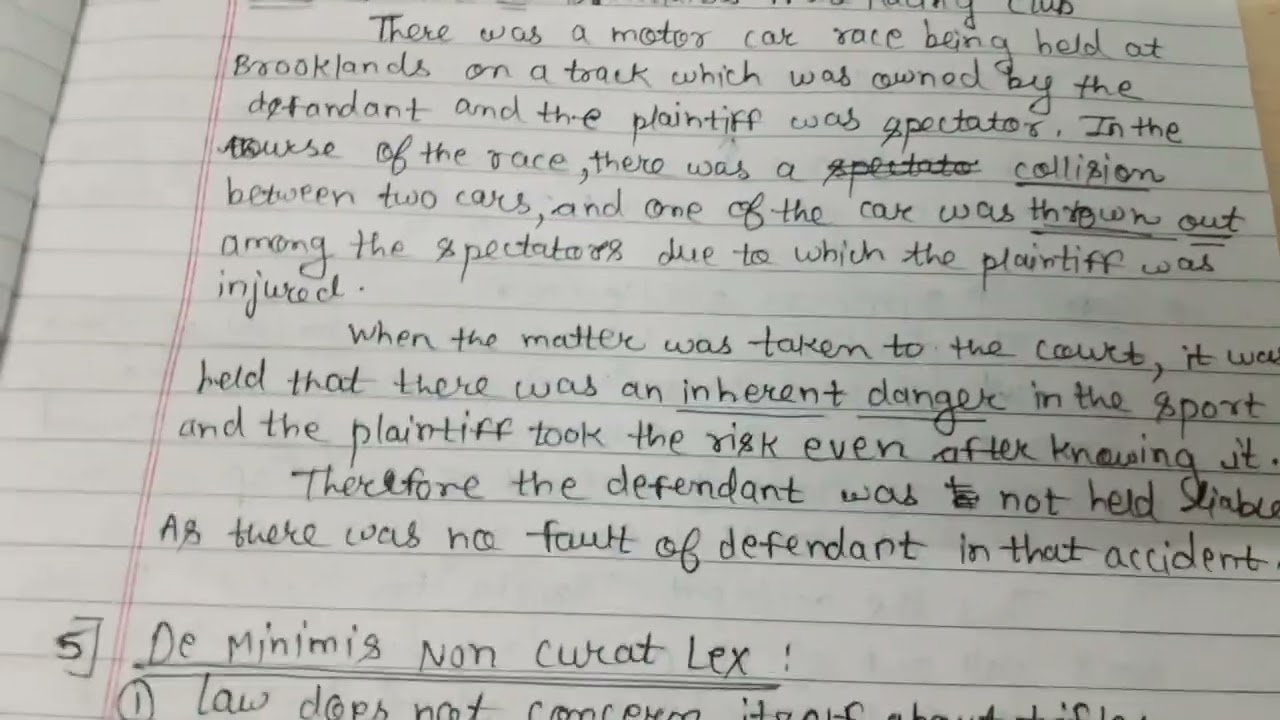 Racing Club
There was a motor car race being held at
Brooklands on a track which was owned by the
defandant and the plaintiff was spectator. In the
course of the race, there was a spectato collision
between two cars, and one of the car was thrown out
among the spectators due to which the plaintiff was
injured.
When the matter was taken to the court, it was
held that there was an inherent danger in the sport
and the plaintiff took the risk even after knowing it.
Therefore the defendant was not held liable
As there was no fault of defendant in that accident.
5] De Minimis Non Curat Lex :
① law does not concern itself about trifles